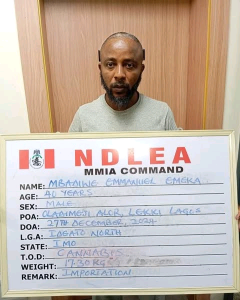 NDLEA
MMIA COMMAND
NAME: MBADIWE EMMANUEL EMEKA
AGE: 40 YEARS
SEX: MALE
POA: LEKKI LAGOS
DOA: 27TH DECEMBER, 2024
L.G.A: IDEATO NORTH
STATE: IMO
T.O.D: CANNABIS
WEIGHT: KGS
REMARK: IMPORTATION